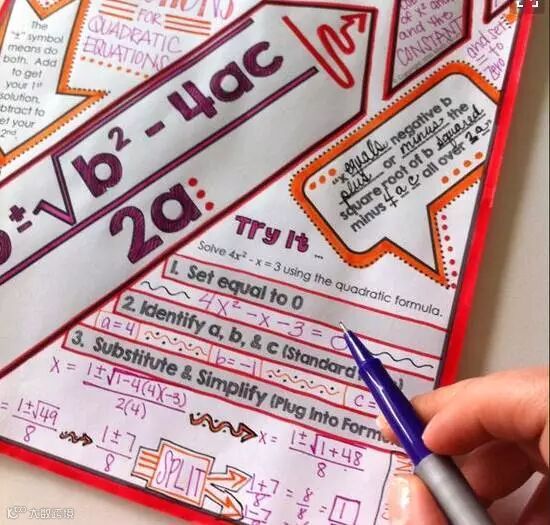 FOR
QUADRATIC
EQUATIONS
The
"±" symbol
means do
both. Add
to get
your 1st
solution,
btract to
et your
2nd
of x² and
and the
CONSTANT
and set
to
zero
±√b² - 4ac
2a
"x equals negative b
plus or minus the
square root of b squared
minus 4 a c all over 2a"
Try It ...
Solve 4x² - x = 3 using the quadratic formula.
1. Set equal to 0
4x² - x - 3 = 0
2. Identify a, b, & c (Standard
a = 4 b = -1 c =
3. Substitute & Simplify (Plug Into Form
x = 1 ± √1-4(4)(-3)
2(4)
x = 1 ± √1+48
8
= 1±√49
8
1±7
8
SPLIT
1+7
8
= 8
8
= 1
1-7